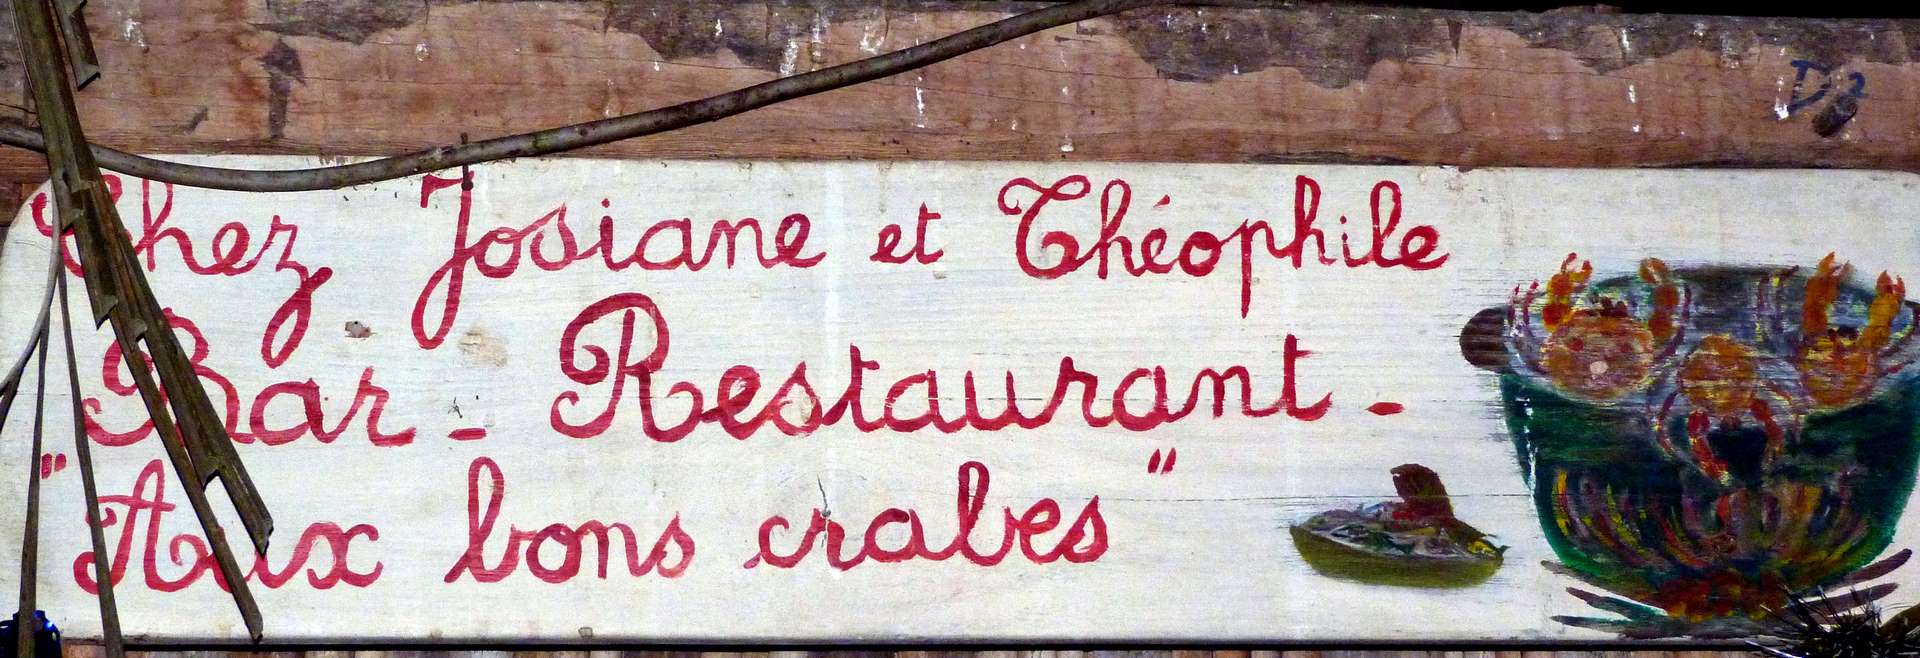 D2
Chez Josiane et Théophile
Bar - Restaurant -
"Aux bons crabes"